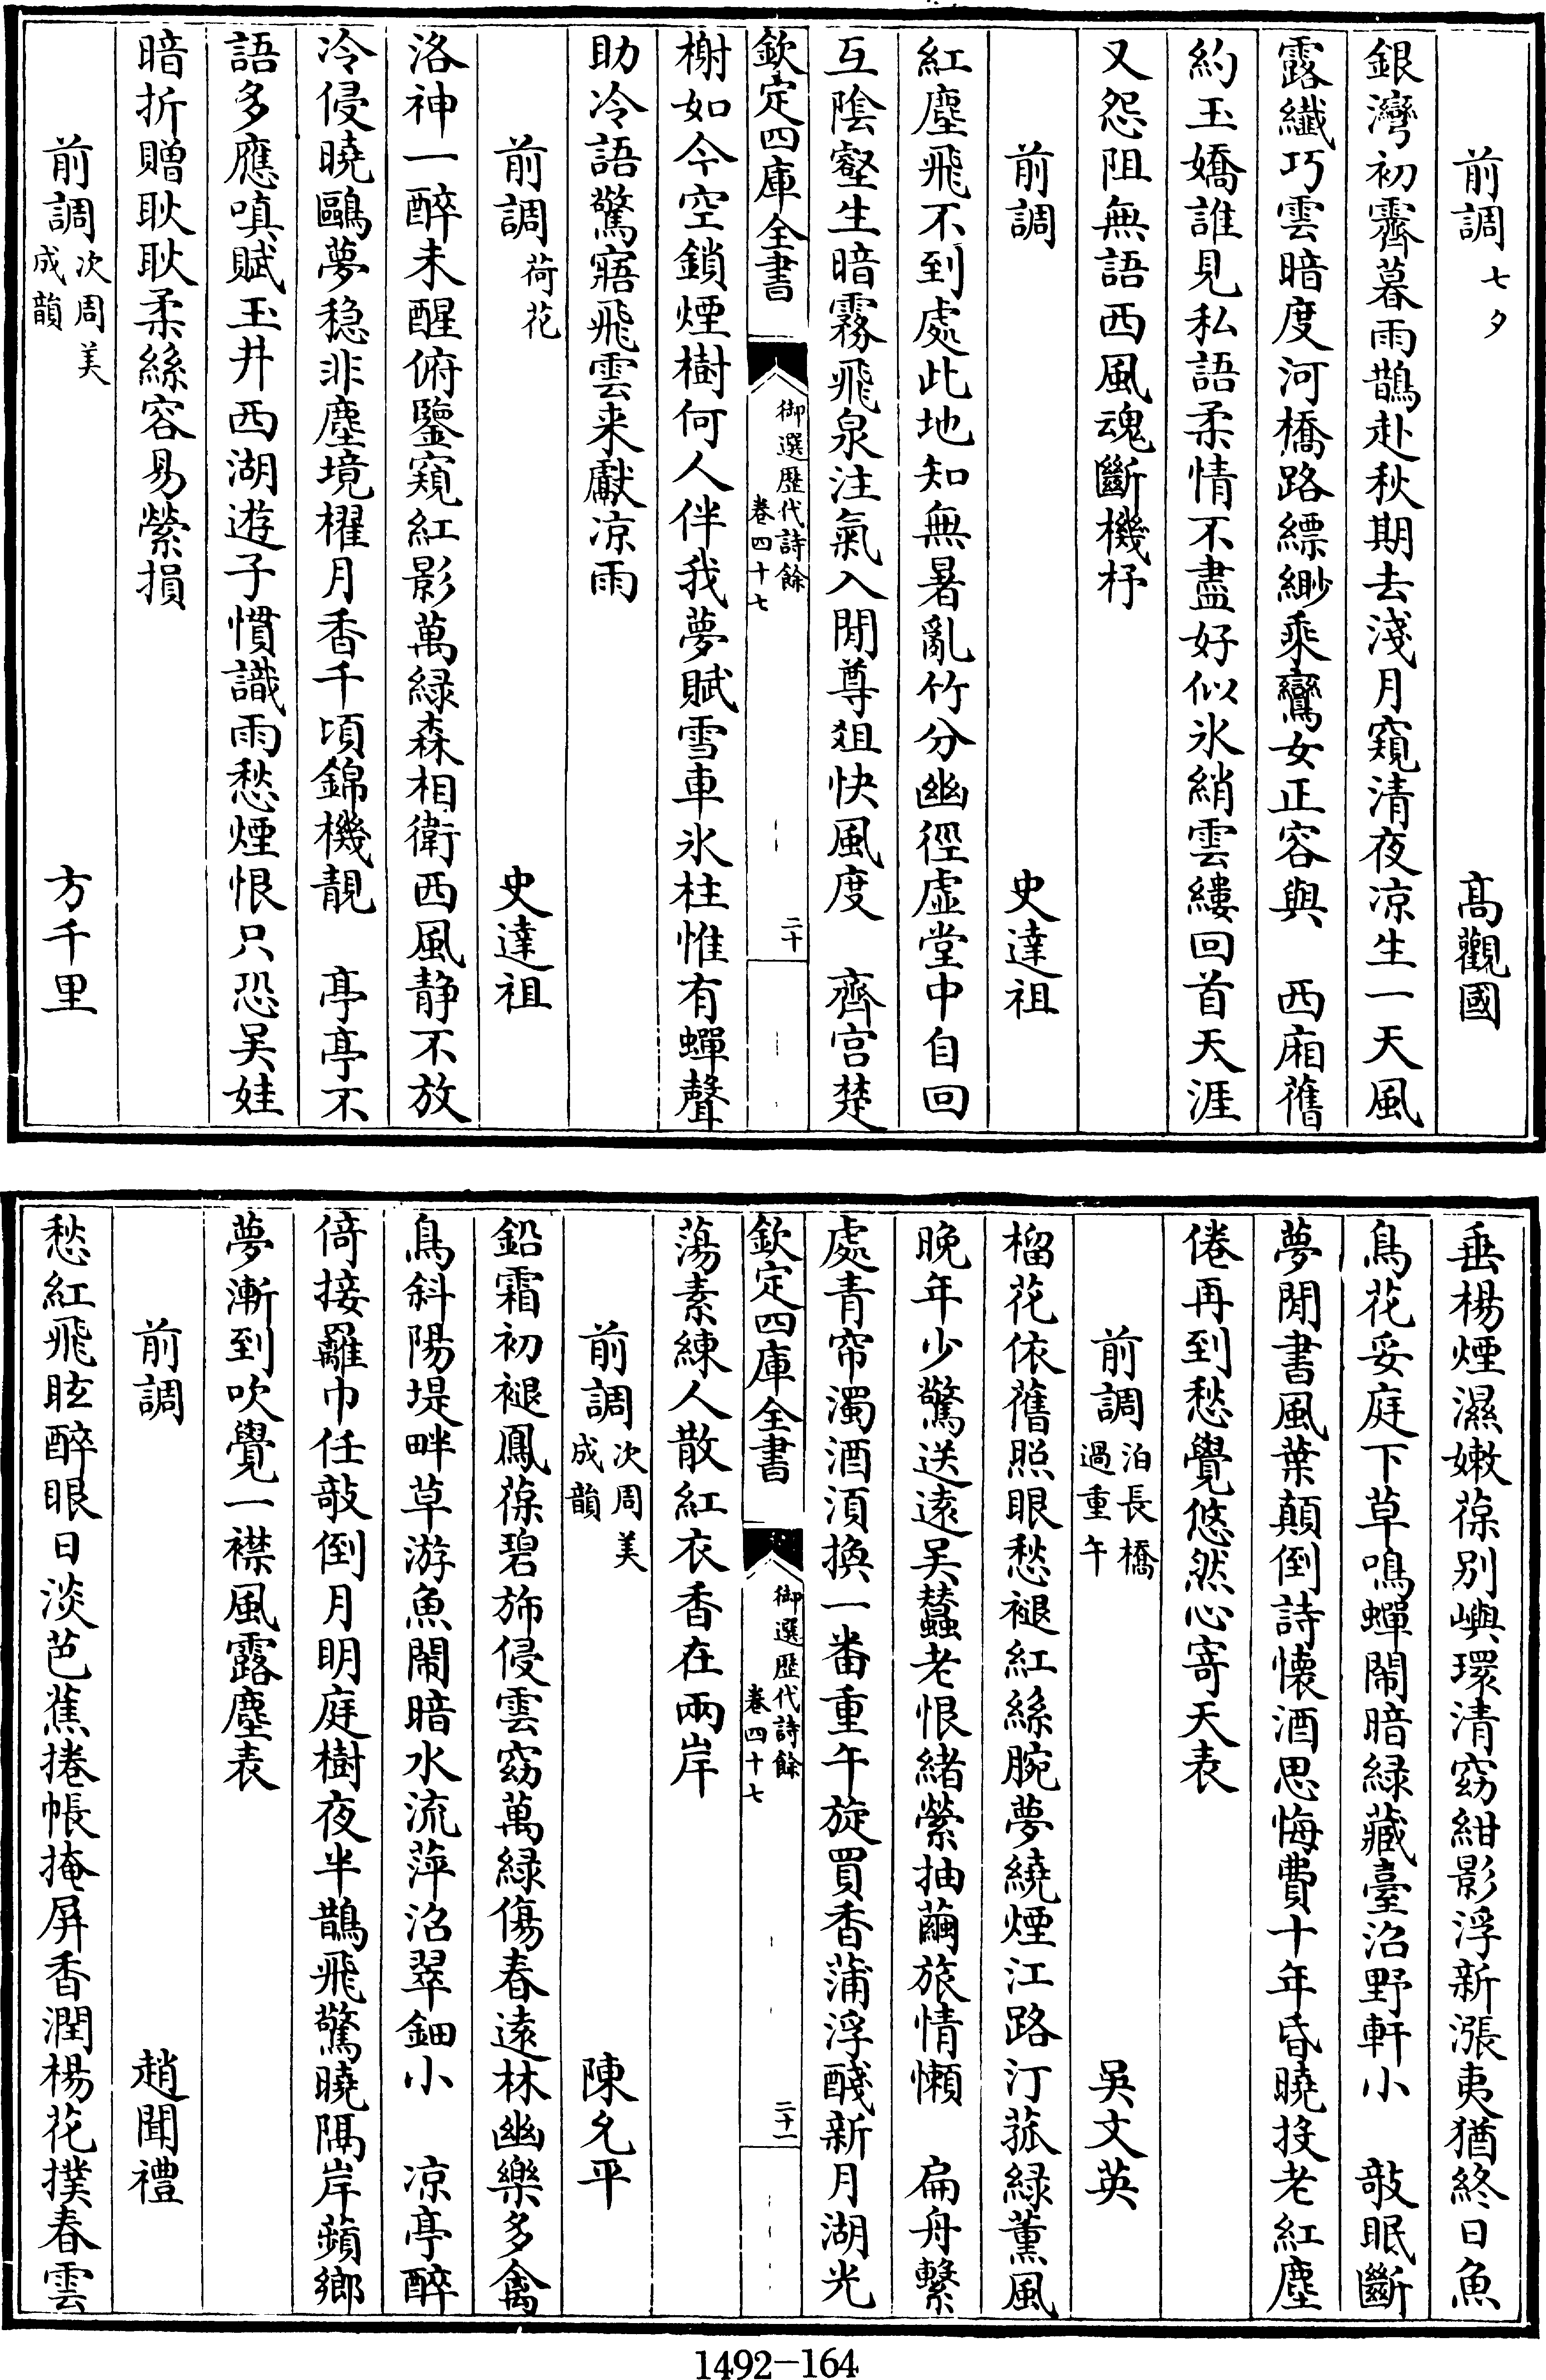 前調七夕　高觀國
銀灣初霽暮雨鵲赴秋期去淺月窺清夜凉生一天風
露纖巧雲暗度河橋路縹緲乘鸞女正容與　西廂舊
約玉嬌誰見私語柔情不盡好似氷綃雲縷回首天涯
又怨阻無語西風魂斷機杼
前調　史達祖
紅塵飛不到處此地知無暑亂竹分幽徑虛堂中自回
互陰壑生暗霧飛泉注氣入閒尊爼快風度　齊宫楚
欽定四庫全書
御選歷代詩餘
卷四十七
二十
榭如今空鎖煙樹何人伴我夢賦雪車氷柱惟有蟬聲
助冷語驚寤飛雲来獻凉雨
前調荷花　史達祖
洛神一醉未醒俯鑒窺紅影萬緑森相衛西風静不放
冷侵曉鷗夢稳非塵境櫂月香千頃錦機靚　亭亭不
語多應嗔賦玉井西湖遊子慣識雨愁煙恨只恐吴娃
暗折贈耿耿柔絲容易縈損
前調次周美成韻　方千里
垂楊煙濕嫩葆别嶼環清窈紺影浮新漲夷猶終日魚
鳥花妥庭下草鳴蟬鬧暗緑藏臺沼野軒小　敧眠斷
夢閒書風葉顛倒詩懐酒思悔費十年昏曉投老紅塵
倦再到愁覺悠然心寄天表
前調泊長橋過重午　吳文英
榴花依舊照眼愁褪紅絲腕夢繞煙江路汀菰緑薰風
晚年少驚送逺吴蠶老恨緒縈抽繭旅情懶　扁舟繫
處青帘濁酒湏換一番重午旋買香蒲浮醆新月湖光
欽定四庫全書
御選歷代詩餘
卷四十七
二十一
蕩素練人散紅衣香在兩岸
前調次周美成韻　陳允平
鉛霜初褪鳳葆碧斾侵雲窈萬緑傷春逺林幽樂多禽
鳥斜陽堤畔草游魚鬧暗水流萍沼翠鈿小　凉亭醉
倚接䍦巾任敧倒月明庭樹夜半鵲飛驚曉隔岸蘋鄉
夢漸到吹覺一襟風露塵表
前調　趙聞禮
愁紅飛眩醉眼日淡芭蕉捲帳掩屏香潤楊花撲春雲
1492-164